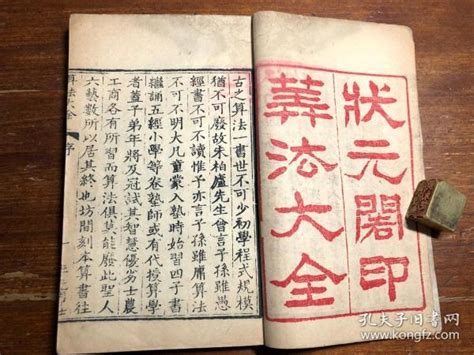 狀元閣印
算法大全
古之算法一書世不可少初學程式規模
猶不可廢故朱柏廬先生曾言子孫雖愚
經書不可不讀惟予亦言子孫雖庸算法
不可不明大凡童蒙入塾時始習四子書
繼誦五經小學等卷塾師或有代授算學
者蓋子弟年將及冠試其智慧優劣士農
工商各有所習而算法俱莫能廢此聖人
六藝數所以居其終也坊間刻本算書往
算法大全 序
孔夫子旧书网
kongfz.com